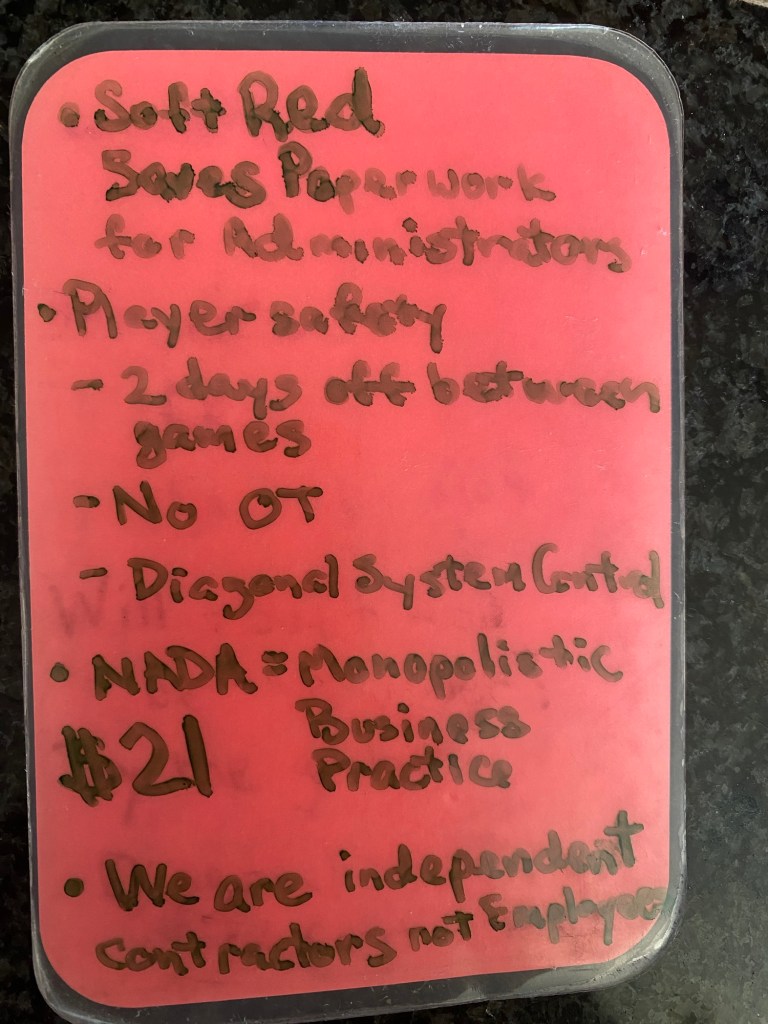 • Soft Red
Saves Paperwork
for Administrators
• Player safety
- 2 days off between
games
- No OT
- Diagonal System Control
• NADA = Monopolistic
$21 Business
Practice
• We are independent
contractors not Employees